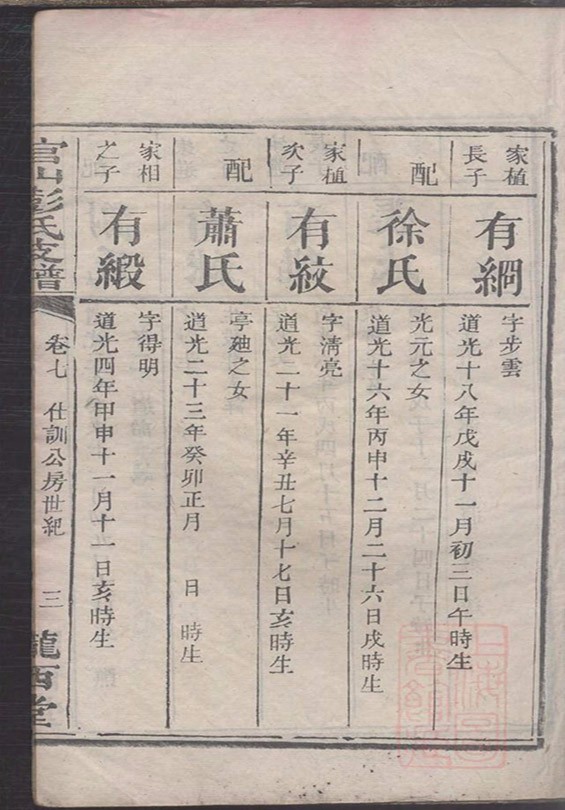 家植
長子
有綱
字步雲
道光十八年戊戌十一月初三日午時生
配
徐氏
光元之女
道光十六年丙申十二月二十六日戌時生
家植
次子
有紋
字清亮
道光二十一年辛丑七月十七日亥時生
配
蕭氏
亭廸之女
道光二十三年癸卯正月 日 時生
家相
之子
有緞
字得明
道光四年甲申十一月十一日亥時生
官山彭氏支譜
卷七 仕訓公房世紀 三
隴西堂